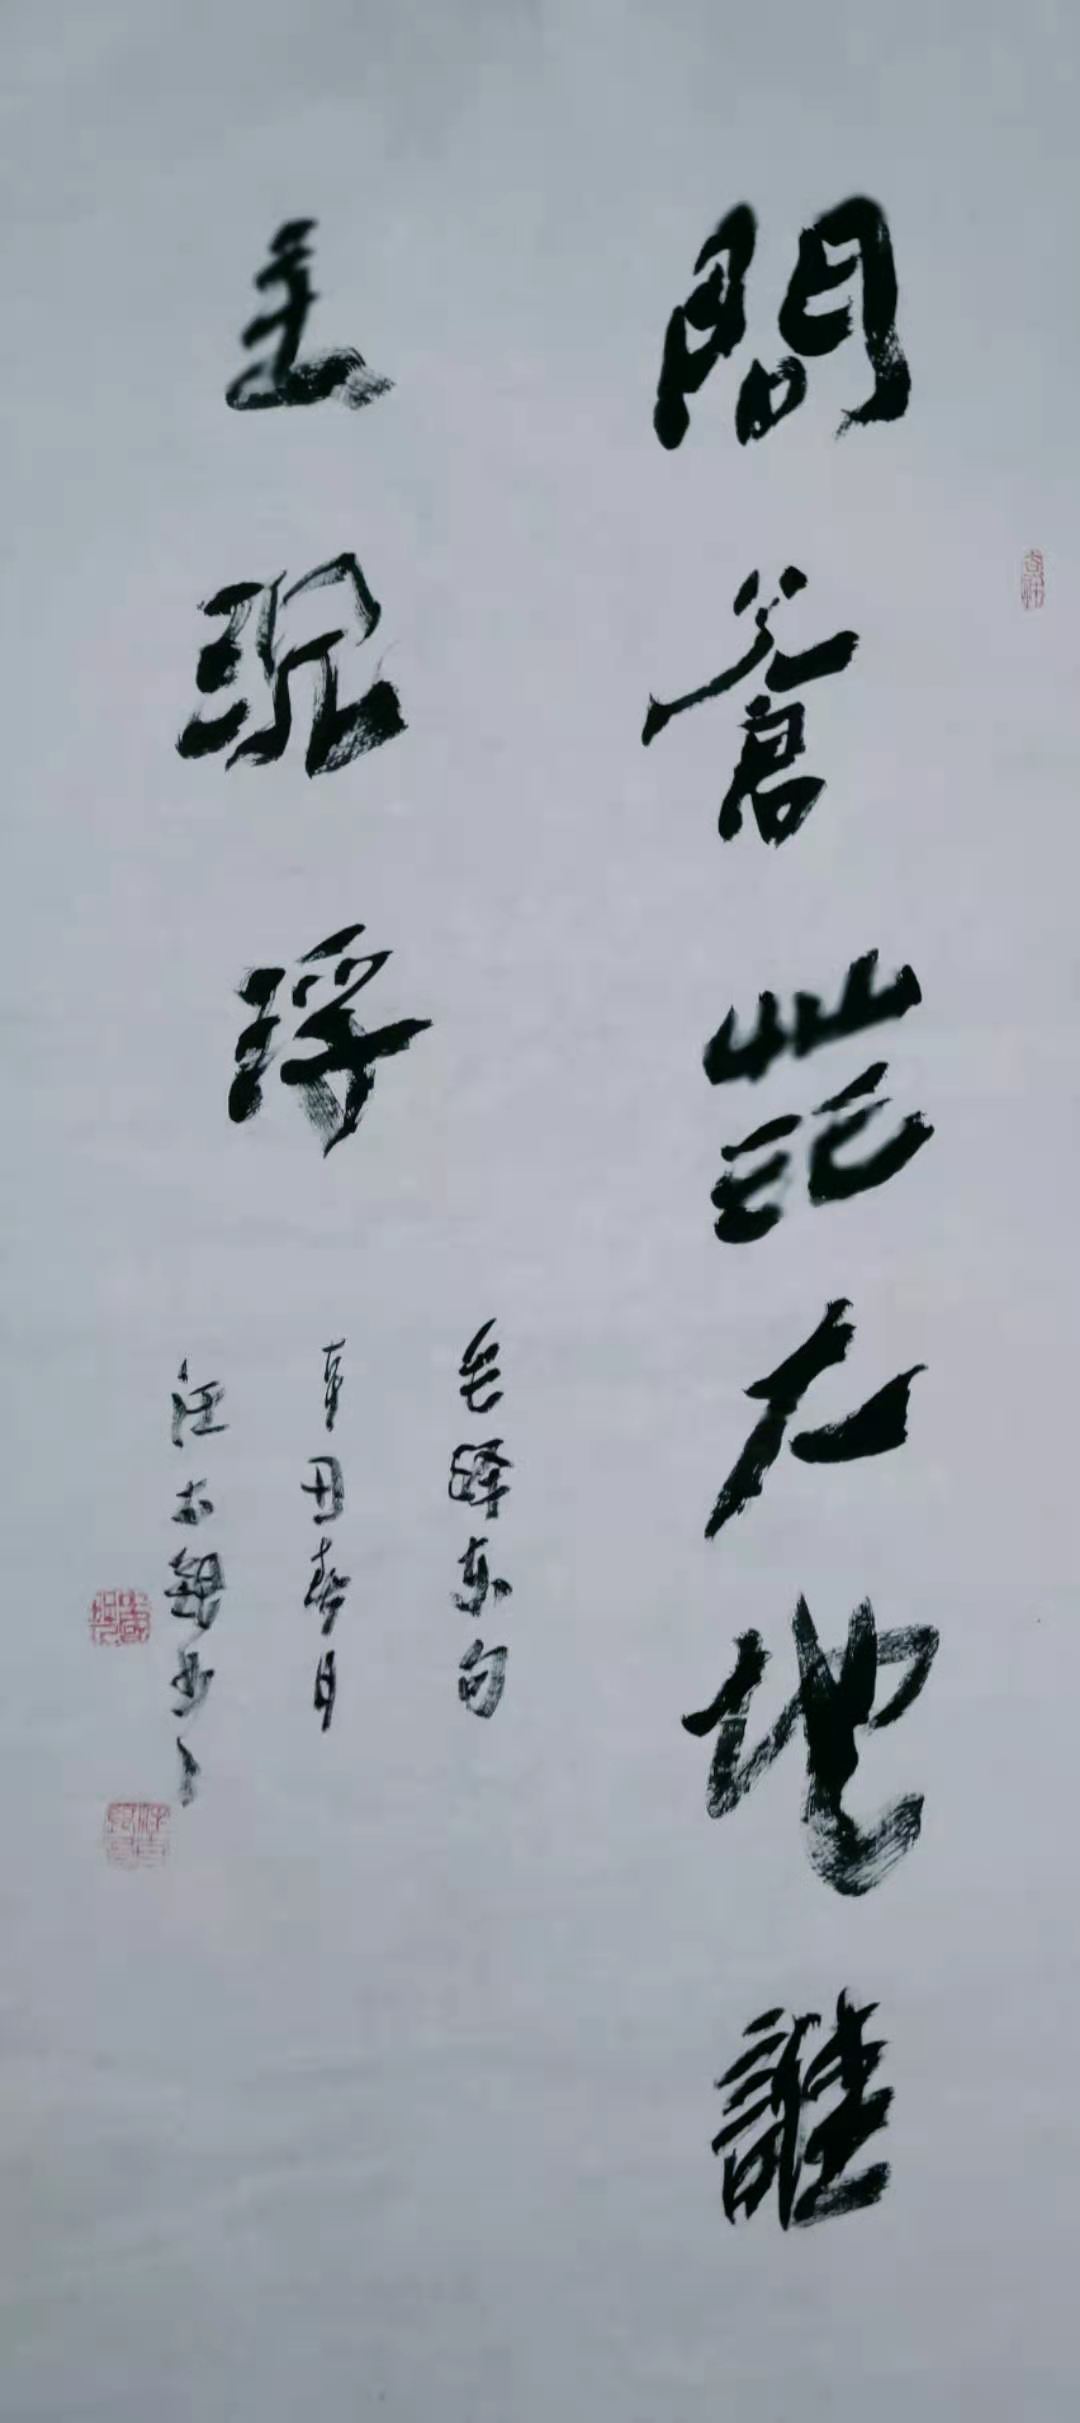 問蒼茫大地誰
主沉浮
毛澤东句
辛丑春月
汪